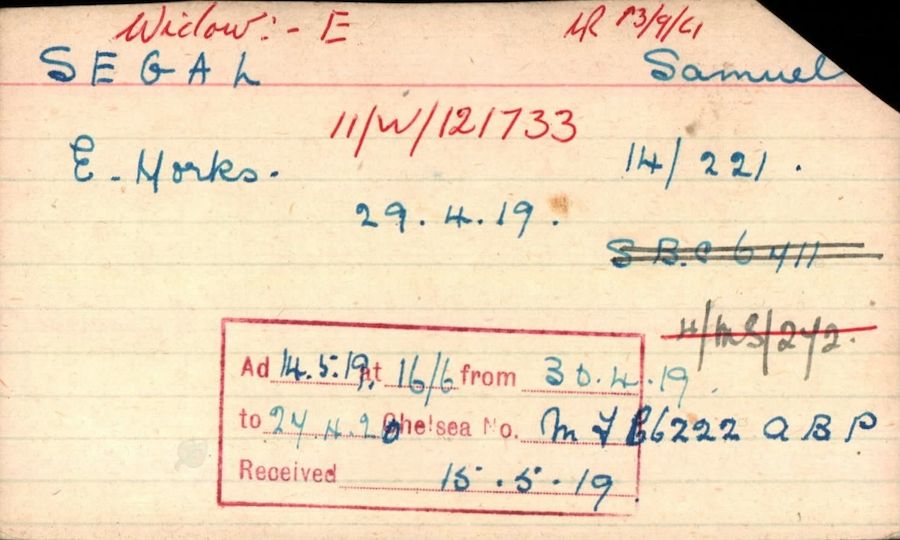 Widow:- E 13/9/61
SEGAL Samuel
11/W/121733
E. Yorks. 14/221.
29.4.19.
S.B.C 6411
4/MS/242.
Ad 14.5.19. at 16/6 from 30.4.19.
to 27.4.20 Chelsea No. 66222 A B P
Received 15.5.19